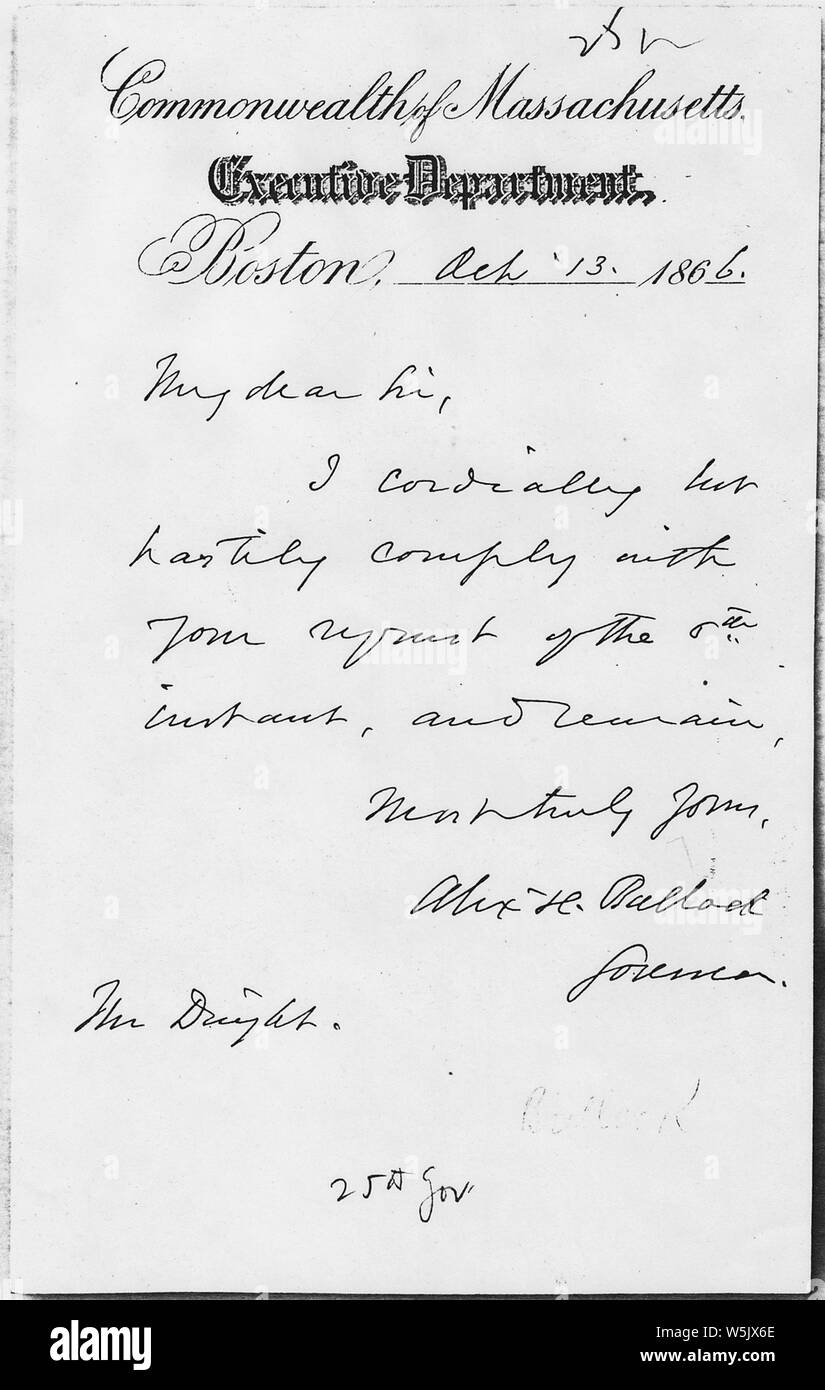 Commonwealth of Massachusetts.
Executive Department,
Boston, Oct 13. 1866.
My dear Sir,
I cordially but
hastily comply with
your request of the 8th
instant, and remain,
Most truly yours,
Alex H. Bullock
Governor.
Mr Dwight.
Bullock
25th Gov
alamy
Image ID: W5JX6E
www.alamy.com